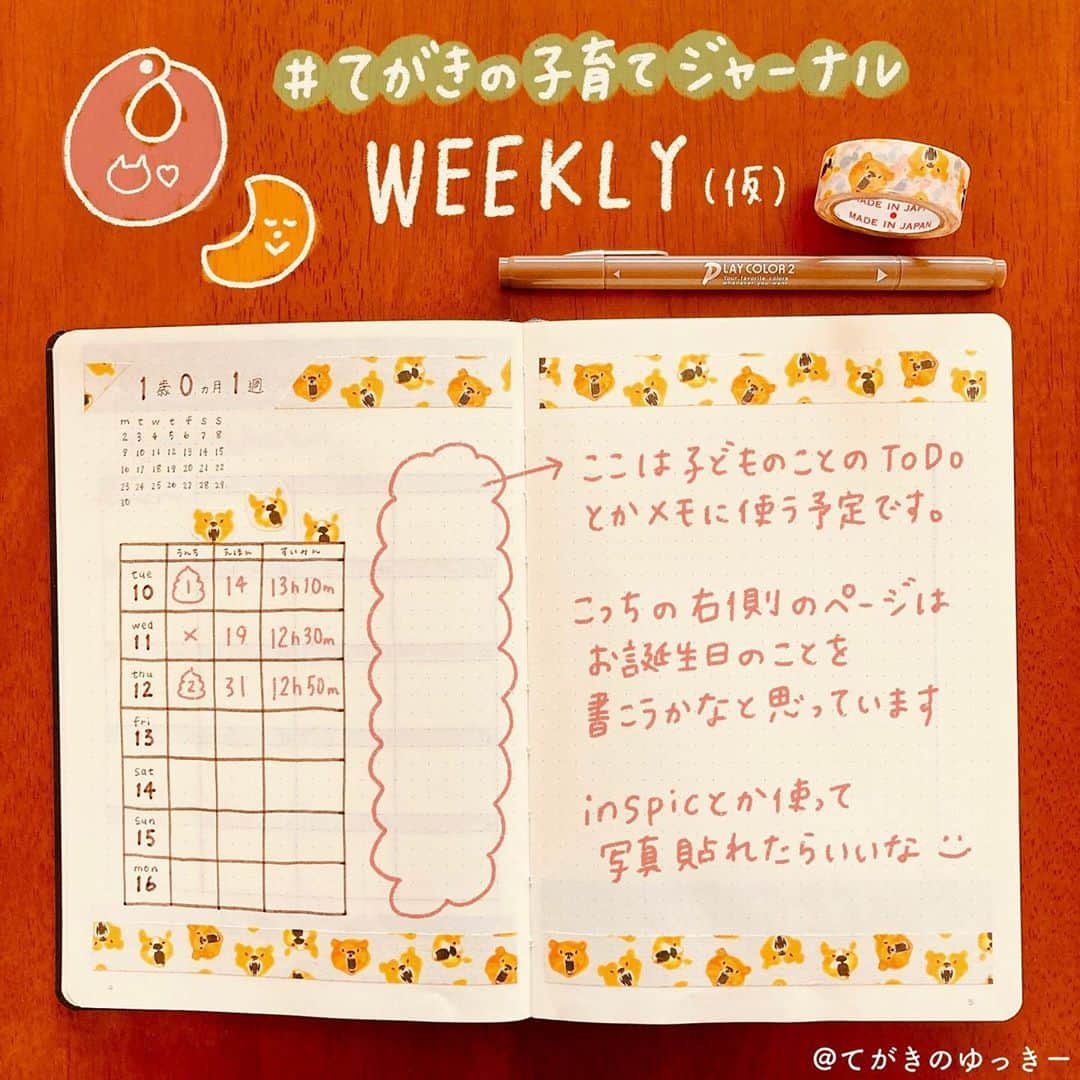 #てがきの子育てジャーナル
WEEKLY(仮)
MADE IN JAPAN
MADE IN JAPAN
PLAY COLOR 2
Your favorite colors
whenever you want
1歳0ヵ月1週
m t w t f s s
2 3 4 5 6 7 8
9 10 11 12 13 14 15
16 17 18 19 20 21 22
23 24 25 26 27 28 29
30
うんち えほん すいみん
tue 10 1 14 13h10m
wed 11 × 19 12h30m
thu 12 2 31 12h50m
fri 13
sat 14
sun 15
mon 16
ここは子どものことのToDo
とかメモに使う予定です。
こっちの右側のページは
お誕生日のことを
書こうかなと思っています
inspicとか使って
写真貼れたらいいな
5
@てがきのゆっきー